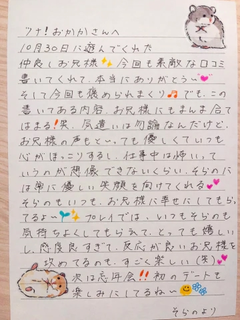 フナ!おかかさんへ
10月30日に遊んでくれた
仲良しお兄様✨今回も素敵な口コミ
書いてくれて、本当にありがとう〜💕
そして今回も褒められまくり🎵でも、この
書いてある内容、お兄様にもまんま当て
はまる!笑 気遣いは勿論なんだけど、
お兄様の声もと〜っても優しくていつも
心がほっこりするし、仕事中は怖いって
いうのが想像できないくらい、そらのに
は常に優しい笑顔を向けてくれる💕
そらのもいつも、お兄様に幸せにしてもらっ
てるよ〜✨プレイでは、いつもそらのも
気持ちよくしてもらえて、とっても嬉しい
し、感度良すぎて、反応が良いお兄様を
攻めてるのも、すごく楽しい(笑)💕
次は忘年会‼初のデートも
楽しみにしてるね〜
そらのより